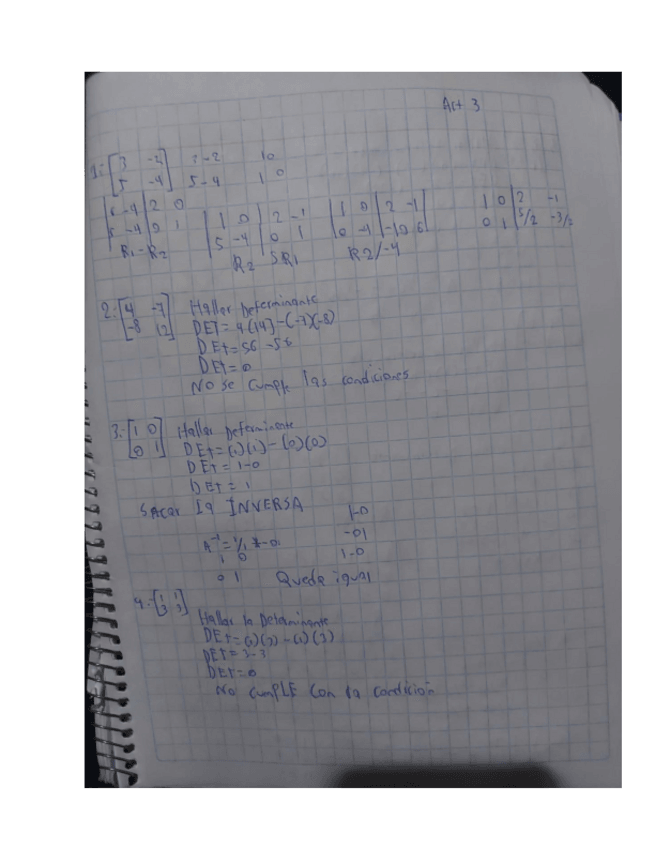 Act 3
1: [3 -2] 3-2 10
[5 -4] 5-4 1 0
6 -4 | 2 0 1 0 | 2 -1 1 0 | 2 -1 1 0 | 2 -1
5 -4 | 0 1 5 -4 | 0 1 0 -4 | -10 6 0 1 | 5/2 -3/2
R1-R2 R2 5R1 R2/-4
2: [4 -7] Hallar Determinante
[-8 12] DET= 4(14)-(-7)(-8)
DEt=56-56
DEt=0
No se cumple las condiciones
3.-[1 0] Hallar Determinante
[0 1] DEt=(1)(1)-(0)(0)
DEt= 1-0
DEt= 1
SACAR la INVERSA 1-0
A⁻¹= 1/1 -01
1 0 1-0
0 1 Queda igual
4.-[1 1]
[3 3] Hallar la Determinante
DEt=(1)(3)-(1)(3)
DEt=3-3
DEt=0
No cumpLE Con la condición